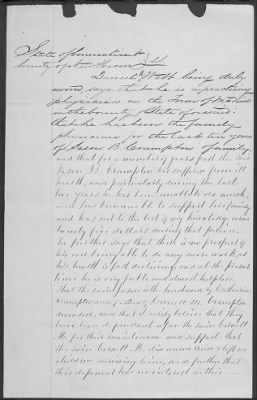 State of Connecticut
County of New Haven } ss
Daniel M Webb being duly
sworn, says that he is a practicing
physician in the Town of Madison
in the County & State aforesaid
that he has been the family
physician for the last ten years
of Jason B. Crampton & family
and that for a number of years past the said
Jason B. Crampton has suffered from ill
health, more particularly during the last
two years he has been unable to do much,
and has been unable to support his family
and has not to the best of my knowledge earned
twenty five dollars during that period.
He further says that there is no prospect of
his ever being able to do any more work as
his health is fast declining and at the present
time he is very feeble and almost helpless
That the said Jason is the husband of Catharine
Crampton and father of Everett M. Crampton
deceased, and that I verily believe that they
have been dependant upon the said Everett
M. for their maintenance and support; that
the said Everett M. died unmarried & left no
children surviving him, and further that
this deponent has no interest in this